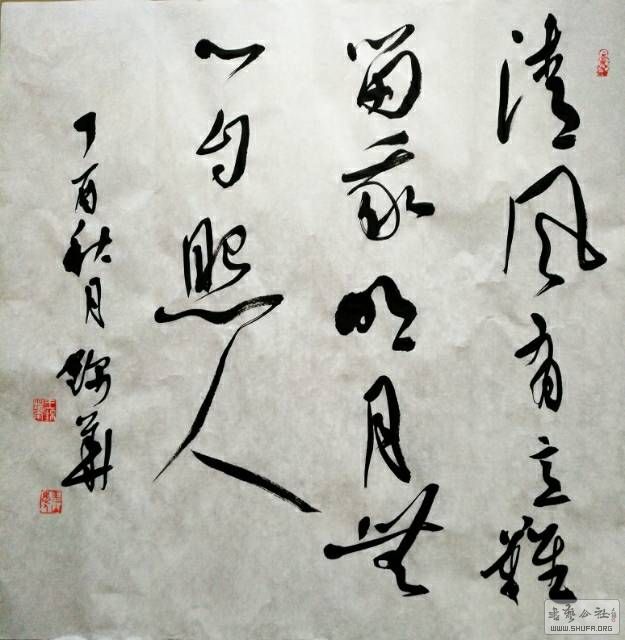 清風有意難
留我明月無
心自照人
丁酉秋月 華
書藝公社
WWW.SHUFA.ORG